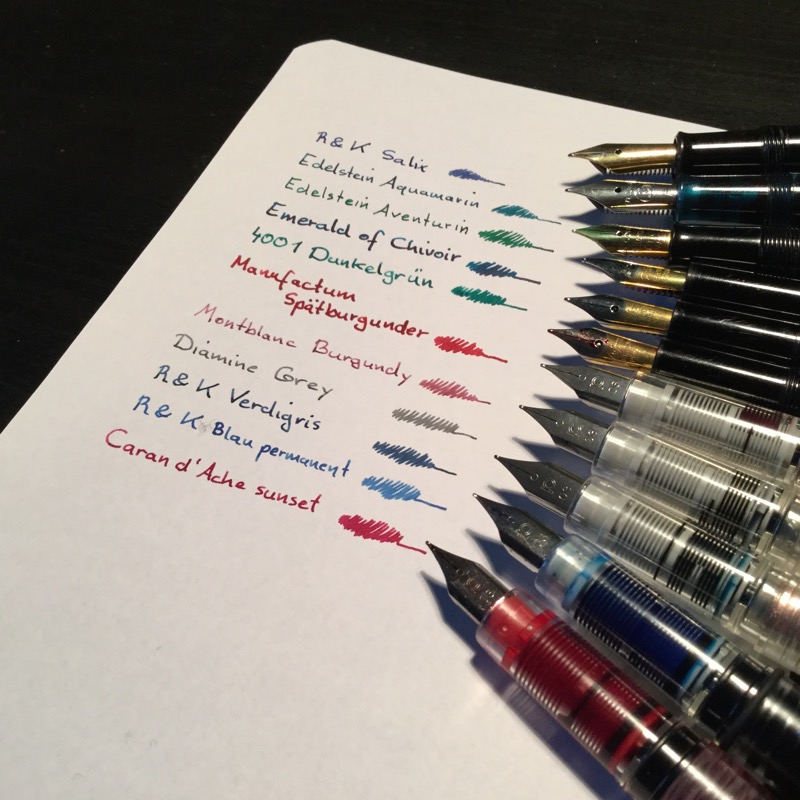 R & K Salix
Edelstein Aquamarin
Edelstein Aventurin
Emerald of Chivoir
4001 Dunkelgrün
Manufactum
Spätburgunder
Montblanc Burgundy
Diamine Grey
R & K Verdigris
R & K Blau permanent
Caran d'Ache sunset